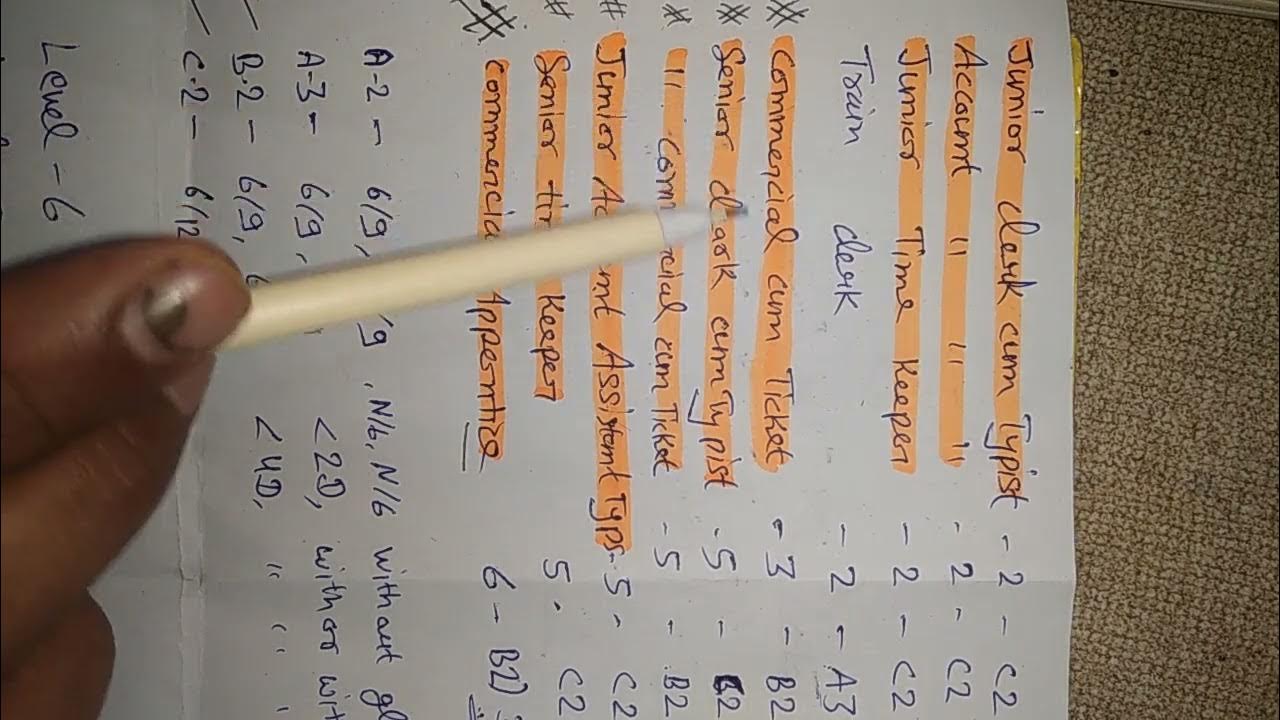 Junior Clerk cum Typist - 2 - C2
Account " " " - 2 - C2
Junior Time Keeper - 2 - C2
Train clerk - 2 - A3
* Commercial cum Ticket - 3 - B2
* Senior clark cum Typist - 5 - C2
* " Commercial cum Ticket - 5 - B2
# Junior Account Assistant Typs - 5 - C2
# Senior time Keeper 5 - C2
# Commercial Apprentice 6 - B2)
A-2 - 6/9, 6/9, N/6, N/6 without
A-3 - 6/9, <2D, with or
B-2 - 6/9, <4D, " "
C-2 - 6/12
Level - 6